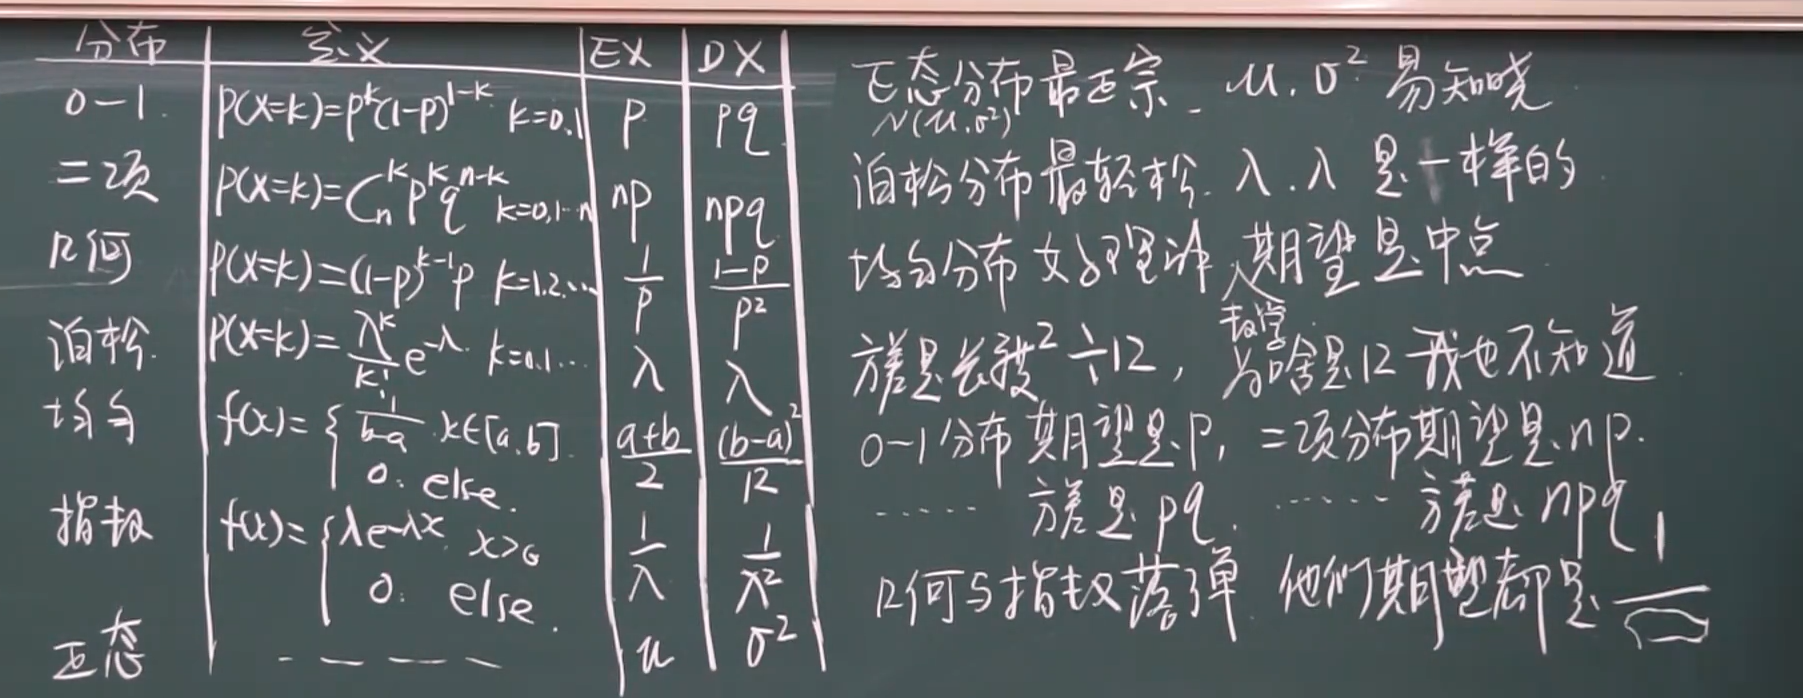 分布 定义 EX DX
0-1 P(X=k)=p^k(1-p)^{1-k} k=0.1 p pq
二项 P(X=k)=C_n^k p^k q^{n-k} k=0,1…n np npq
几何 P(X=k)=(1-p)^{k-1}p k=1.2.… 1/p (1-p)/p²
泊松 P(X=k)=λ^k/k! e^{-λ} k=0.1… λ λ
均匀 f(x)={1/(b-a) x∈[a,b] (a+b)/2 (b-a)²/12
0. else.
指数 f(x)={λe^{-λx} x>0 1/λ 1/λ²
0. else.
正态 ---- μ σ²
正态分布最正宗 μ.σ² 易知晓
N(μ.σ²)
泊松分布最轻松 λ.λ 是一样的
均匀分布 期望是中点
数学
方差是长度²÷12, 为啥是12 我也不知道
0-1分布期望是p, 二项分布期望是np.
…… 方差是pq. …… 方差是npq
几何与指数落了单 他们期望都是 1/